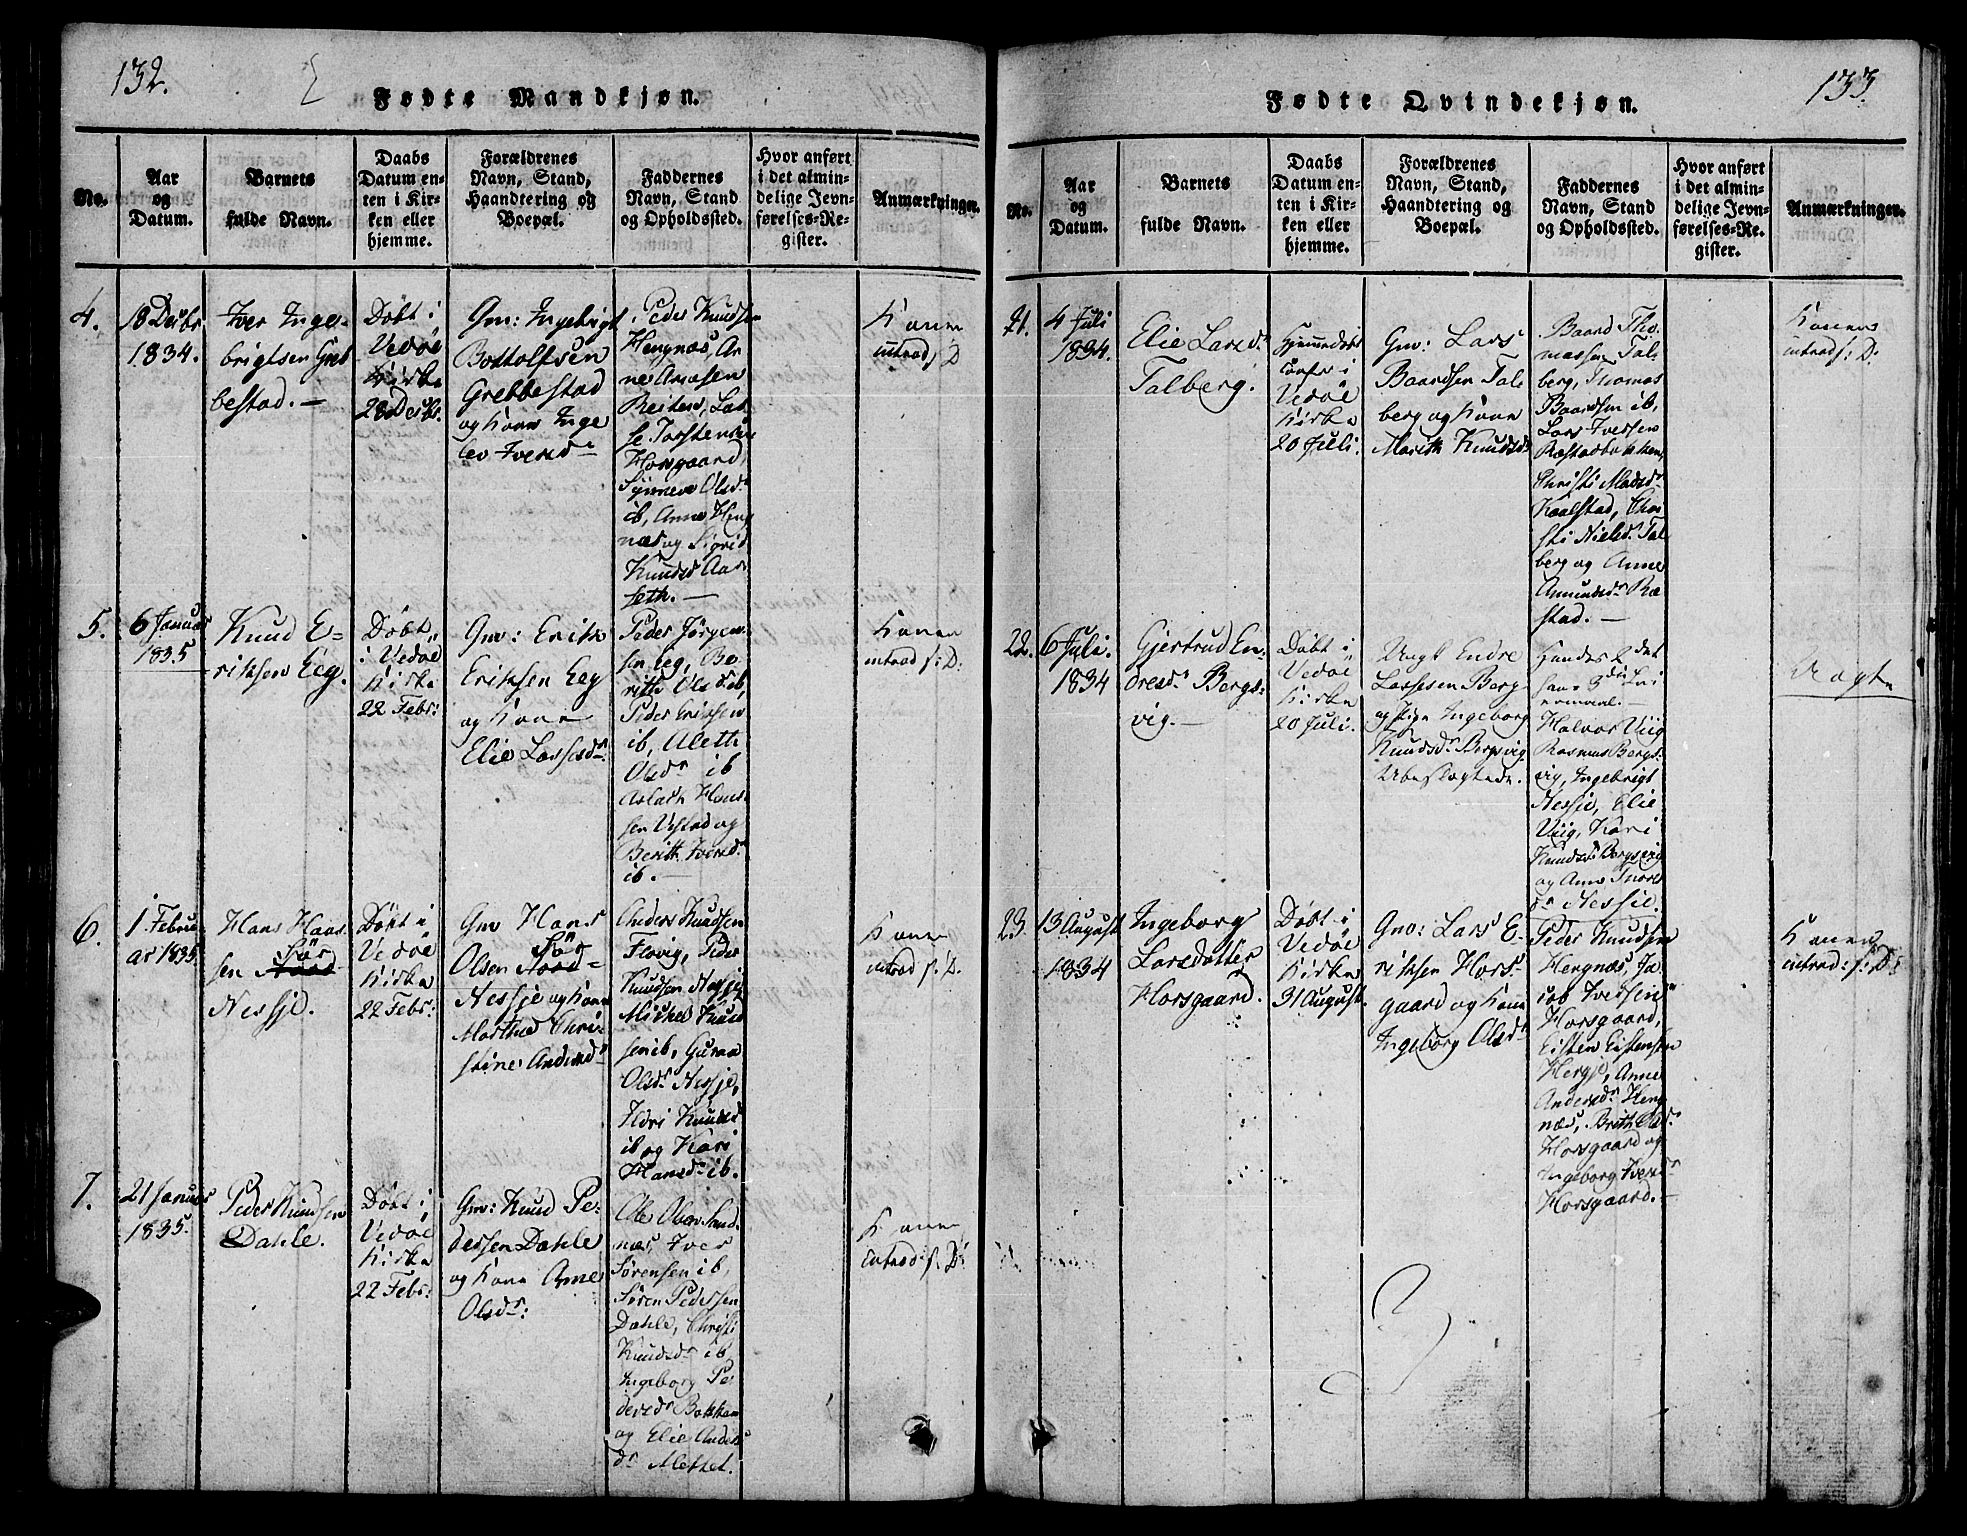 132.
Fødte Mandkjøn.
No.
Aar
og
Datum.
Barnets
fulde Navn.
Daabs
Datum en-
ten i Kir-
ken eller
hjemme.
Forældrenes
Navn, Stand,
Haandtering og
Boepæl.
Faddernes
Navn, Stand
og Opholdssted.
Hvor anført
i det almin-
delige Jevn-
førelses-Re-
gister.
Anmærkninger.
4.
18 Decbr.
1834.
Iver Inge-
brigtsen Greb
bestad. —
Døbt i
Vedøe
Kirke
28 Decbr.
Gm: Ingebrigt
Bottolfsen
Grebbestad
og Kone Inge
lev Iversdr
Peder Knudsen
Hengnæs, Ar
ne Arnesen
Reiten, Las
se Torstensen
Horsgaard,
Synneve Olsdr
ib, Anne Heng
næs og Sigrid
Knudsd Aar
seth. —
Konen
introd f: D:
5.
6 Januar
1835
Knud E-
riksen Eeg.
Døbt
i Vedøe
Kirke
22 Febr:
Gm: Erik
Eriksen Eeg
og Kone
Elie Lassesdr
Peder Jørgen-
sen Eeg, Be
rith Olsd ib,
Peder Eriksen
ib, Aleth
Olsdr ib
Aslach Han-
sen Vestad og
Berith Iversdr
ib. —
Konen
introd f: D:
6.
1 Febru
ar 1835
Hans Hans
sen Nord Sør
Nessje.
Døbt i
Vedøe
Kirke
22 Febr:
Gm Hans
Olsen Nord Sør
Nessje og Kone
Marthe Chri-
stine Andersdr
Anders Knudsen
Flovig, Peder
Knudsen Nessje,
Michel Knud
sen ib, Guran
Olsdr Nessje,
Ildri Knudsd
ib og Kari
Hansdr ib.
Konen
introd f: D:
7.
21 Januar
1835.
Peder Knudsen
Dahle.
Døbt i
Vedøe
Kirke
22 Febr:
Gm: Knud Pe-
dersen Dahle
og Kone Anne
Olsdr:
Ole Olsen Sand
næs, Iver
Sørensen ib,
Søren Pedersen
Dahle, Christi
Knudsdr ib
Ingeborg Pe-
dersdr
og Elie Anders
dr Mettet.
Konen
introd: f: D:
133.
Fødte Qvindekjøn.
No.
Aar
og
Datum.
Barnets
fulde Navn.
Daabs
Datum en-
ten i Kir-
ken eller
hjemme.
Forældrenes
Navn, Stand,
Haandtering og
Boepæl.
Faddernes
Navn, Stand
og Opholdssted.
Hvor anført
i det almin-
delige Jevn-
førelses-Re-
gister.
Anmærkninger.
21.
4 Juli
1834.
Elie Larsdr
Talberg.
Hjemmedøbt
Confr i
Vedøe
Kirke
20 Juli.
Gm: Lars
Baardsen Tal
berg og Kone
Marith Knudsdr
Baard Tho-
massen Tal
berg, Thomas
Baardsen ib,
Lars Iversen
Ræstadbakken,
Christi Madsdr
Kaalstad, Chri
sti Nielsdr Tal
berg og Anne
Amundsdr Ræ
stad. —
Konens
introd f: D:
22.
6 Juli.
1834
Gjertrud En-
dresdr Bergs-
vig. —
Døbt i
Vedøe
Kirke
20 Juli.
Ungk Endre
Lassesen Berg
og Pige Ingeborg
Knudsdr Bergsvig
Ubeslægtede.
Hendes 2det
hans 3die Lei
ermaal. —
Halvor Viig
Rasmus Bergs-
vig, Ingebrigt
Nessje, Elie
Viig, Kari
Knudsdr Bergsvig
og Anne Tores
dr Nessje.
Uægte
23.
13 August
1834
Ingeborg
Larsdatter
Horsgaard.
Døbt i
Vedøe
Kirke
31 August.
Gm: Lars E-
riksen Hors-
gaard og Kone
Ingeborg Olsdr
Peder Knudsen
Hengnæs, Ja
cob Iversen
Horsgaard,
Eisten Eistensen
Hergje, Anne
Andersdr Heng
næs, Brith Olsdr
Horsgaard og
Ingeborg Iversdr
Horsgaard. —
Konen
introd: f: D: